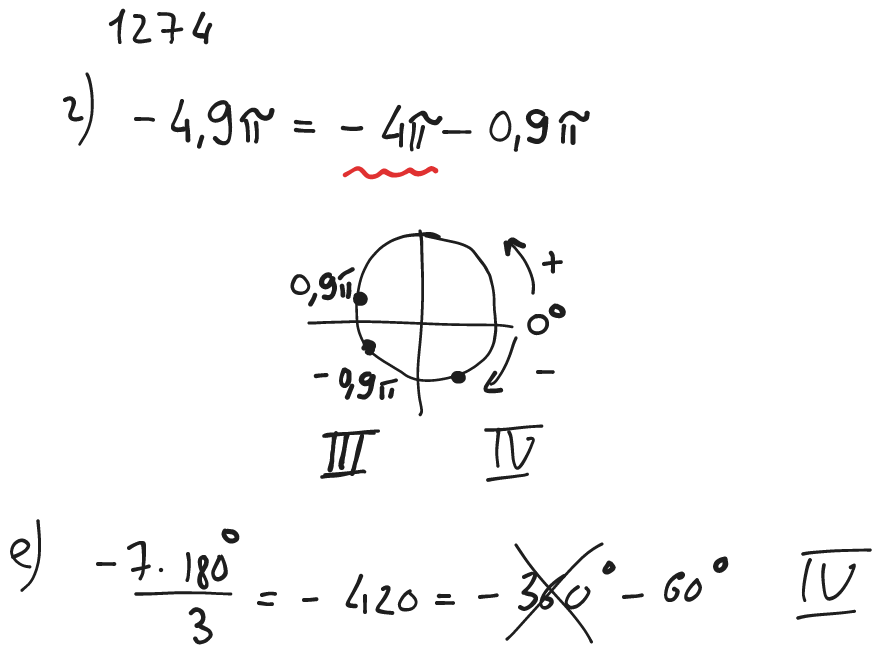 1274
г) - 4,9π = - 4π - 0,9π
+
0,9π
0°
- 0,9π
-
III IV
e) -7 · 180° / 3 = - 420 = - 360° - 60° IV